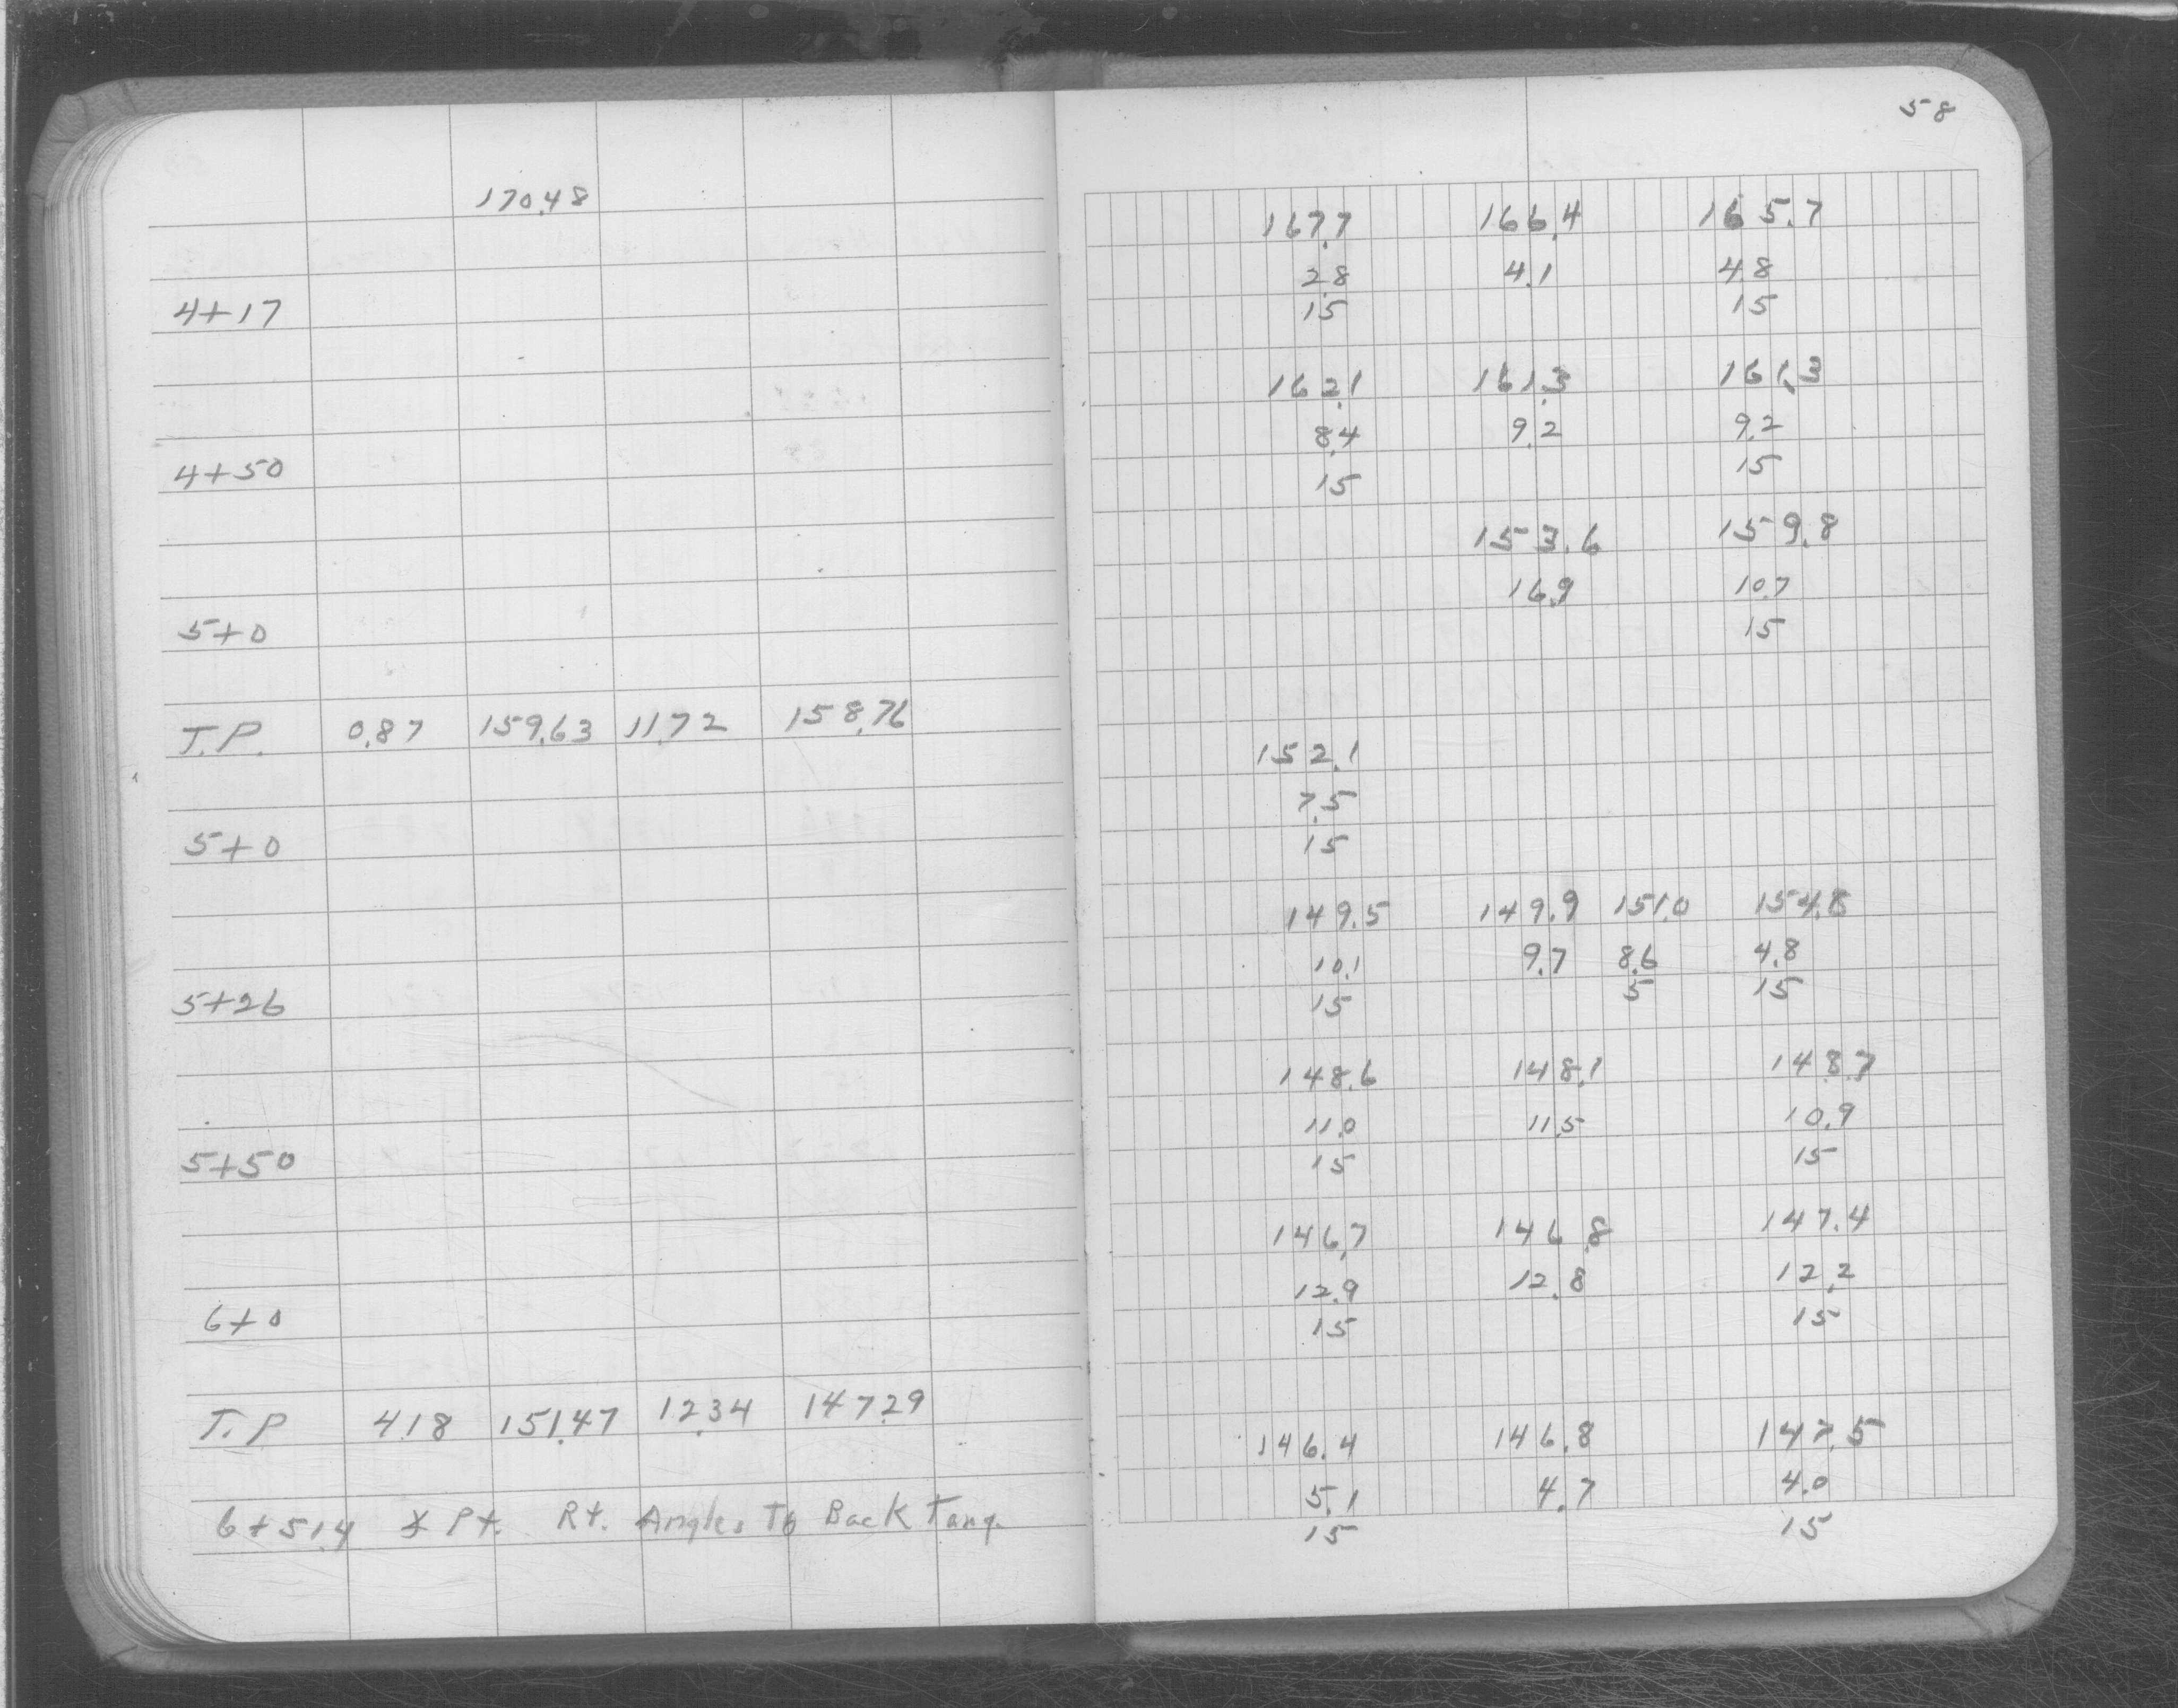 58
170.48
167.7 166.4 165.7
2.8 4.1 4.8
4+17
15 15
162.1 161.3 161.3
8.4 9.2 9.2
4+50
15 15
153.6 159.8
16.9 10.7
5+0
15
T.P. 0.87 159.63 11.72 158.76
152.1
7.5
5+0
15
149.5 149.9 151.0 154.8
10.1 9.7 8.6 4.8
5+26
15 5 15
148.6 148.1 148.7
11.0 11.5 10.9
5+50
15 15
146.7 146.8 147.4
12.9 12.8 12.2
6+0
15 15
T.P 4.18 151.47 12.34 147.29
146.4 146.8 147.5
5.1 4.7 4.0
6+51.4 Pt. Rt. Angles To Back Tang.
15 15